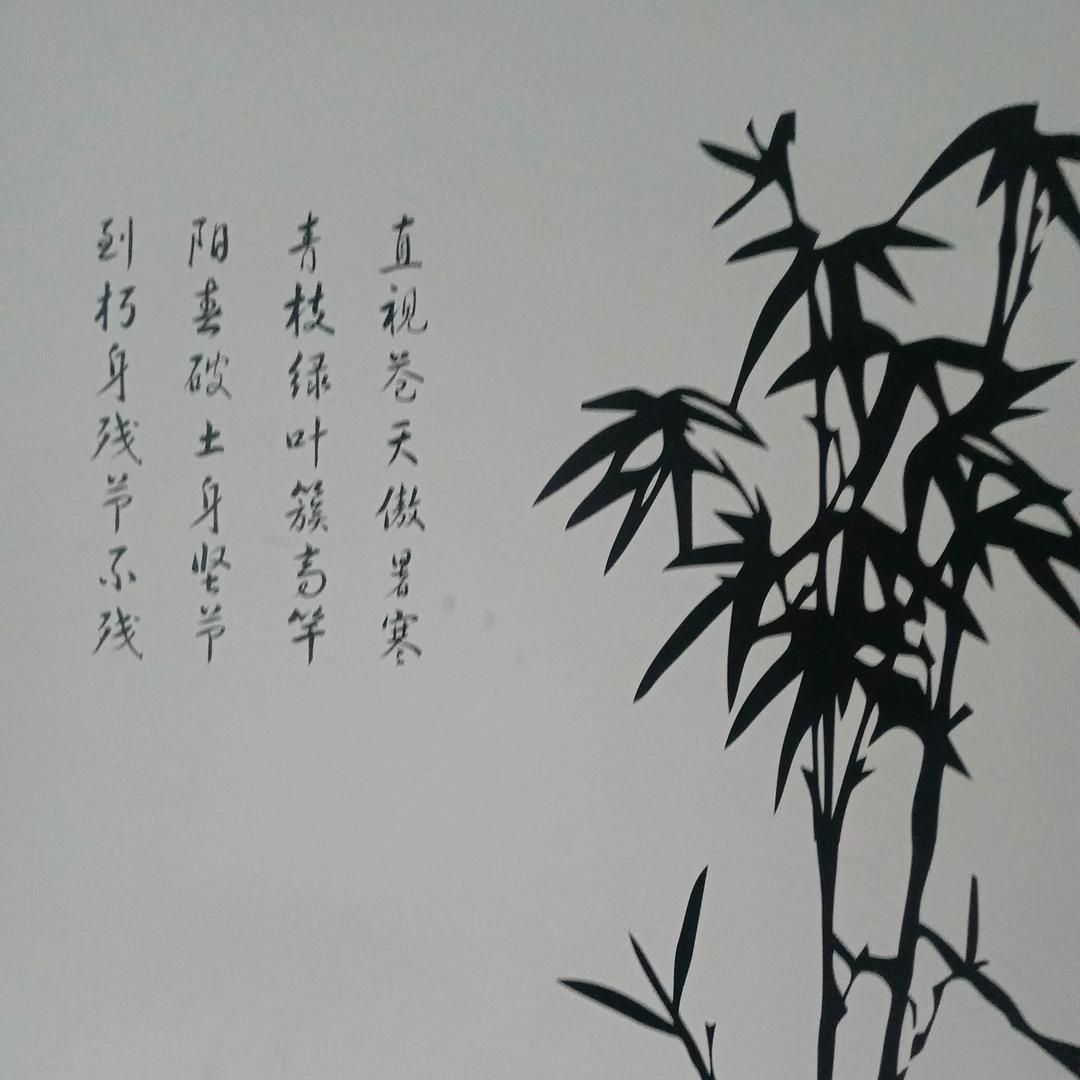 直视苍天傲暑寒
青枝绿叶簇高竿
阳春破土身坚节
到朽身残节不残